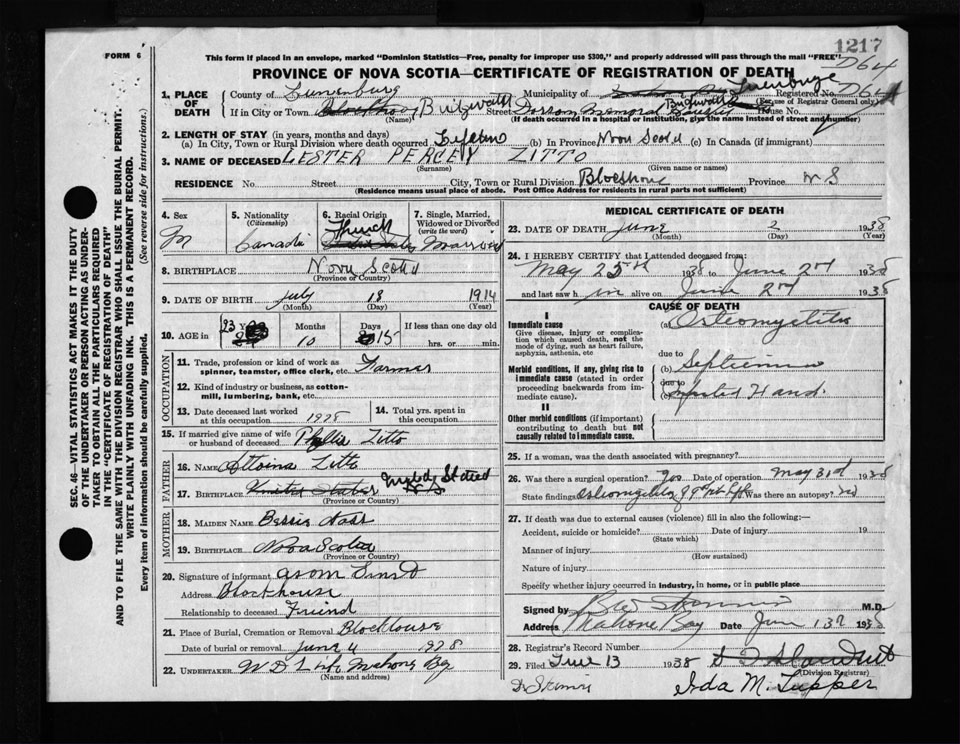 1217
FORM 6
This form if placed in an envelope, marked "Dominion Statistics—Free, penalty for improper use $300," and properly addressed will pass through the mail "FREE"
PROVINCE OF NOVA SCOTIA—CERTIFICATE OF REGISTRATION OF DEATH
764
1. PLACE OF DEATH
County of Lunenburg Municipality of Lunenburg Registered No. 764
(For use of Registrar General only)
If in City or Town Bridgewater Street Memorial House No.
(Name) (If death occurred in a hospital or institution, give the name instead of street and number)
2. LENGTH OF STAY (in years, months and days)
(a) In City, Town or Rural Division where death occurred Lifetime (b) In Province Nova Scotia (c) In Canada (if immigrant)
3. NAME OF DECEASED LESTER PERCEY ZITTO
(Surname) (Given name or names)
RESIDENCE No. Street City, Town or Rural Division Blockhouse Province N S
(Residence means usual place of abode. Post Office Address for residents in rural parts not sufficient)
4. Sex M
5. Nationality (Citizenship) Canadi
6. Racial Origin French
7. Single, Married, Widowed or Divorced (write the word) Married
8. BIRTHPLACE Nova Scotia
(Province or Country)
9. DATE OF BIRTH July 18 1914
(Month) (Day) (Year)
10. AGE in 23 Months 10 Days 15 If less than one day old
hrs. or min.
OCCUPATION
11. Trade, profession or kind of work as spinner, teamster, office clerk, etc. Farmer
12. Kind of industry or business, as cotton-mill, lumbering, bank, etc.
13. Date deceased last worked at this occupation 1938
14. Total yrs. spent in this occupation
15. If married give name of wife or husband of deceased Phyllis Zitto
FATHER
16. NAME Zitto
17. BIRTHPLACE United States
(Province or Country)
MOTHER
18. MAIDEN NAME Bessie
19. BIRTHPLACE Nova Scotia
(Province or Country)
20. Signature of informant
Address Blockhouse
Relationship to deceased Friend
21. Place of Burial, Cremation or Removal Blockhouse
Date of burial or removal June 4 1938
22. UNDERTAKER W D Mahone Bay
(Name and address)
MEDICAL CERTIFICATE OF DEATH
23. DATE OF DEATH June 2 1938
(Month) (Day) (Year)
24. I HEREBY CERTIFY that I attended deceased from:
May 25th 1938 to June 2nd 1938
and last saw him alive on June 2nd 1938
CAUSE OF DEATH
I
Immediate cause
Give disease, injury or complication which caused death, not the mode of dying, such as heart failure, asphyxia, asthenia, etc
(a) Osteomyelitis
due to
Morbid conditions, if any, giving rise to immediate cause (stated in order proceeding backwards from immediate cause).
(b) Septicemia
due to
(c) Infected Hand
II
Other morbid conditions (if important) contributing to death but not causally related to immediate cause.
25. If a woman, was the death associated with pregnancy?
26. Was there a surgical operation? Yes Date of operation May 31st 1938
State findings Osteomyelitis of Was there an autopsy? no
27. If death was due to external causes (violence) fill in also the following:—
Accident, suicide or homicide? Date of injury 19
(State which)
Manner of injury
(How sustained)
Nature of injury
Specify whether injury occurred in industry, in home, or in public place
Signed by M.D.
Address Mahone Bay Date June 13 1938
28. Registrar's Record Number
29. Filed June 13 1938
(Division Registrar)
Ida M. Tupper
SEC. 46—VITAL STATISTICS ACT MAKES IT THE DUTY
OF THE UNDERTAKER OR PERSON ACTING AS UNDER-
TAKER TO OBTAIN ALL THE PARTICULARS REQUIRED
IN THE "CERTIFICATE OF REGISTRATION OF DEATH"
AND TO FILE THE SAME WITH THE DIVISION REGISTRAR WHO SHALL ISSUE THE BURIAL PERMIT.
WRITE PLAINLY WITH UNFADING INK. THIS IS A PERMANENT RECORD.
Every item of information should be carefully supplied. (See reverse side for instructions.)